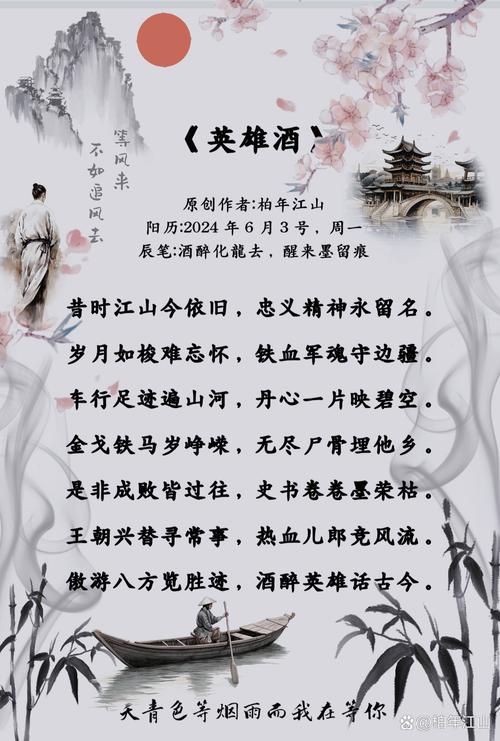 等风来
不如追风去
《英雄酒》
原创作者:柏年江山
阳历:2024 年 6 月 3 号，周一
辰笔:酒醉化龍去，醒来墨留痕
昔时江山今依旧，忠义精神永留名。
岁月如梭难忘怀，铁血军魂守边疆。
车行足迹遍山河，丹心一片映碧空。
金戈铁马岁峥嵘，无尽尸骨埋他乡。
是非成败皆过往，史书卷卷墨荣枯。
王朝兴替寻常事，热血儿郎竞风流。
傲游八方览胜迹，酒醉英雄话古今。
天青色等烟雨而我在等你
@柏年江山